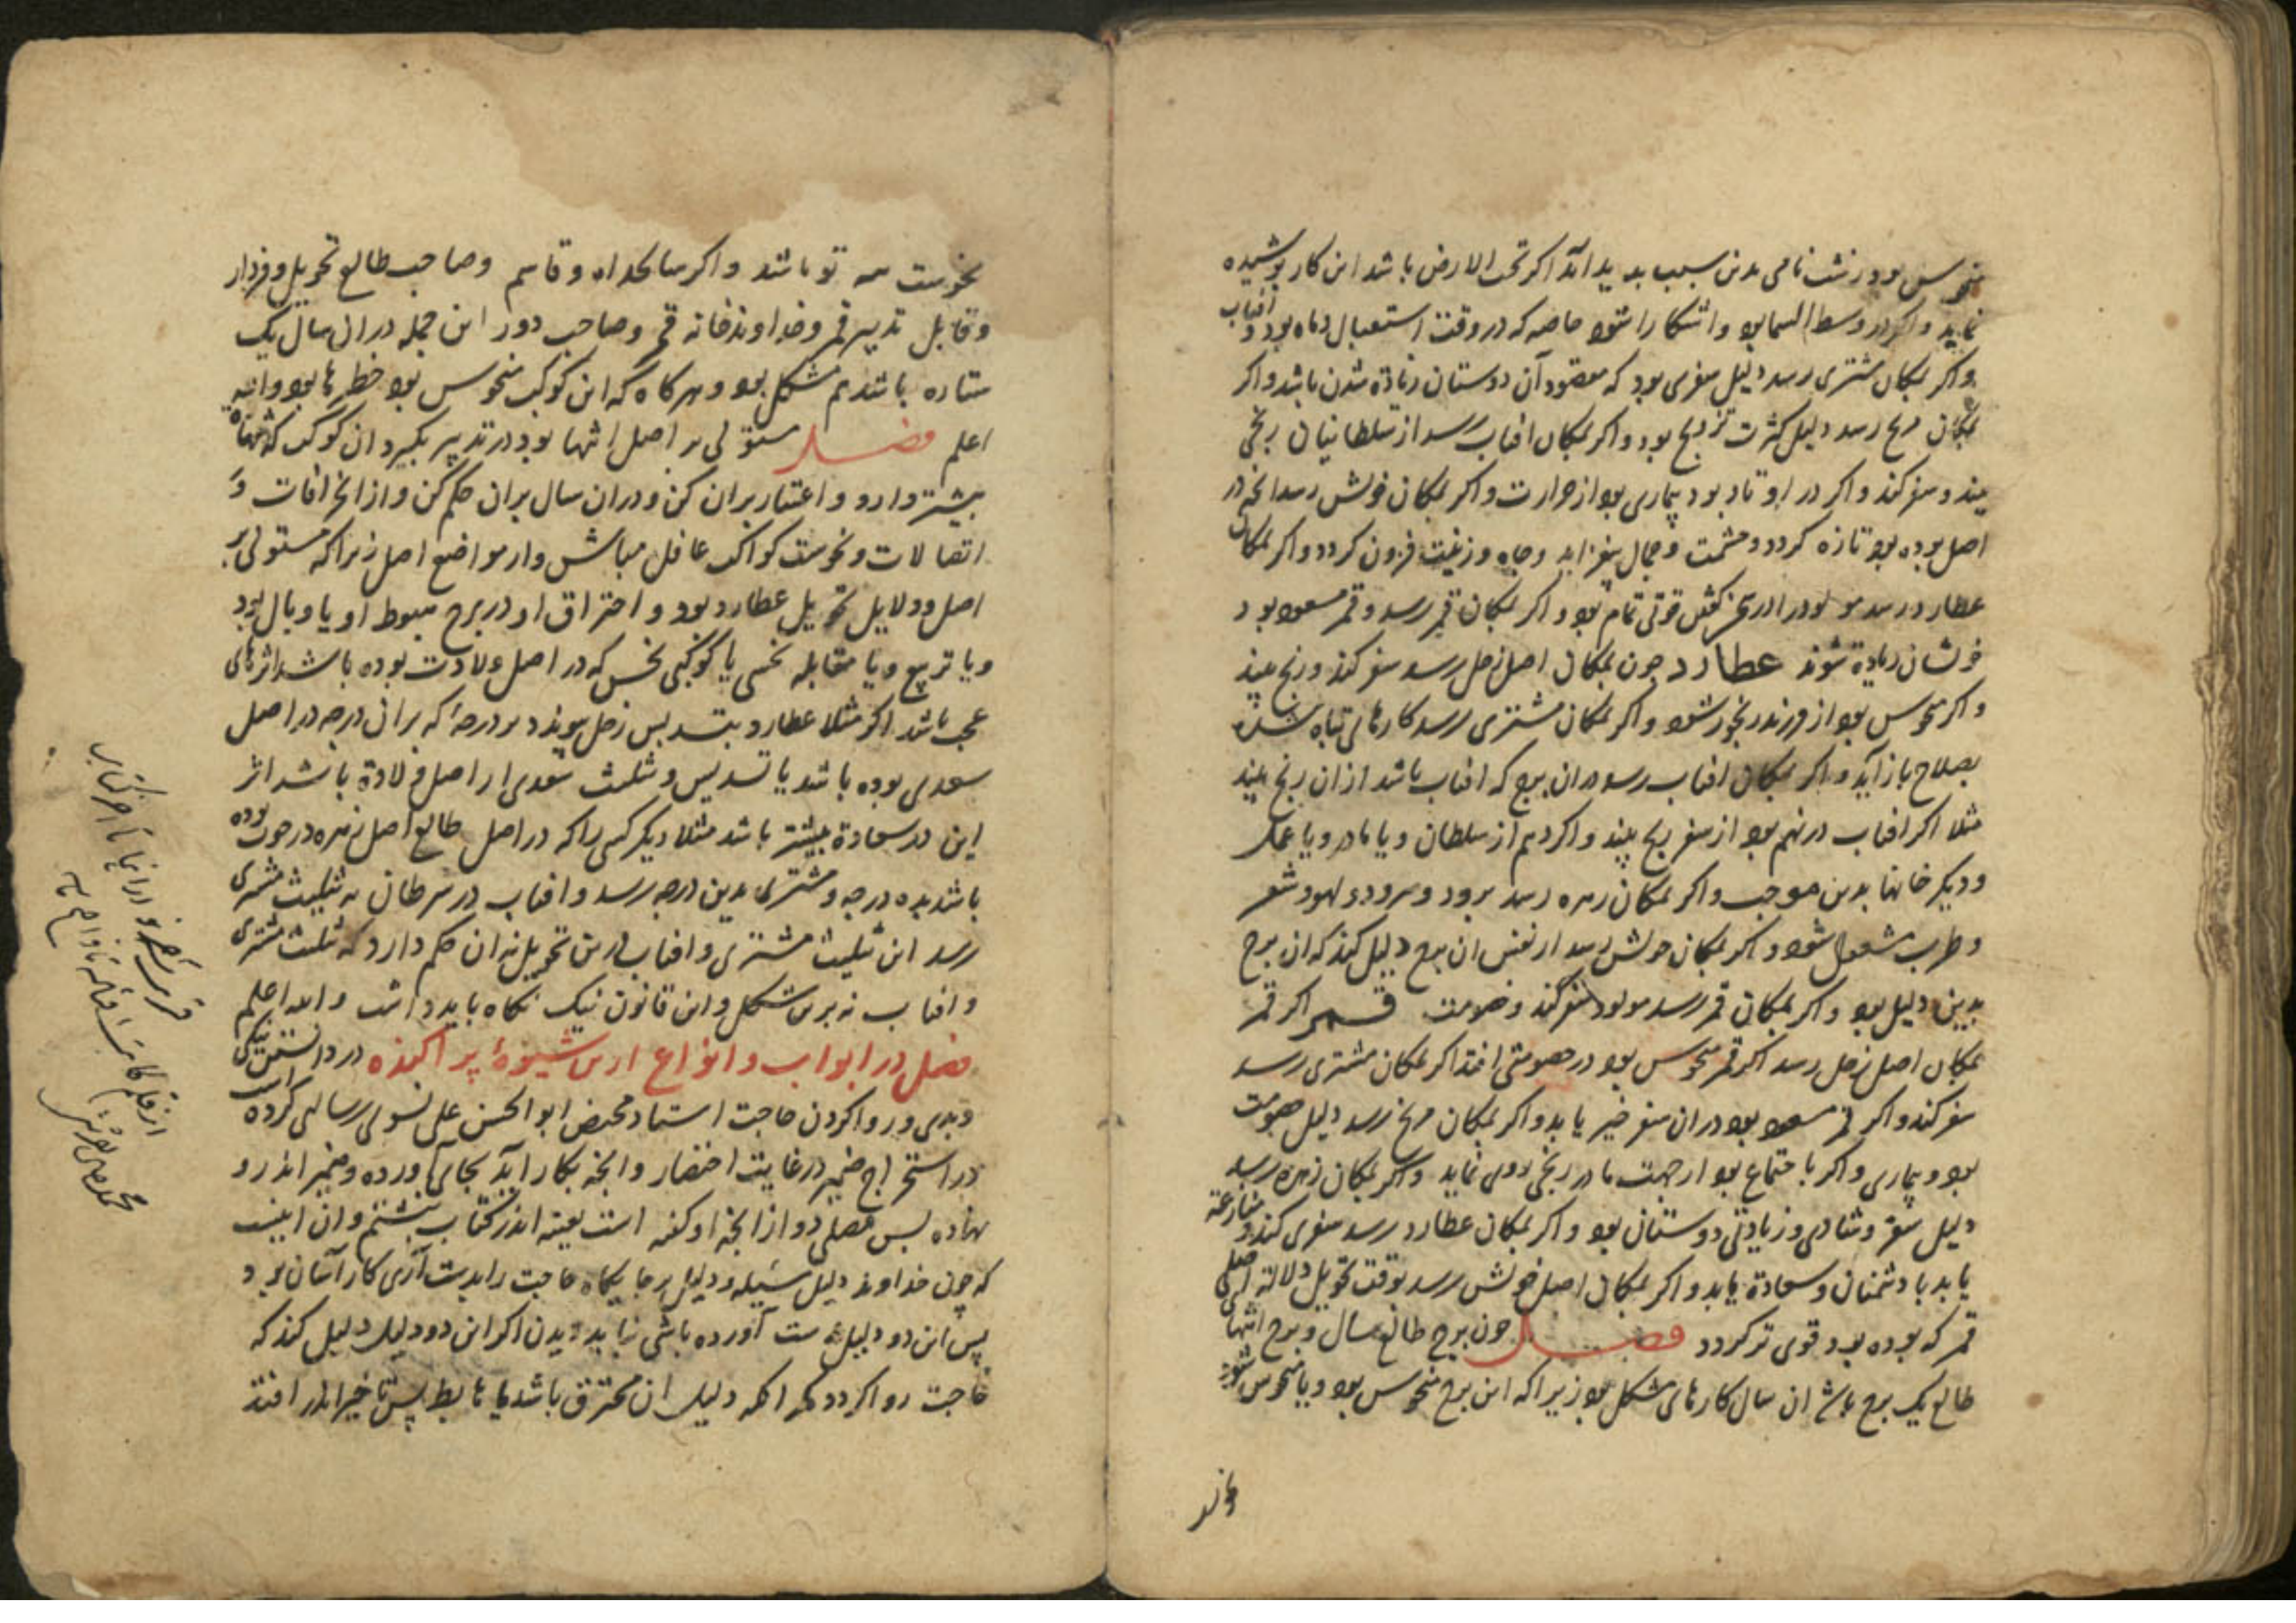 منحوس بود زشت نامی بدین سبب پدید آید اگر تحت الارض باشد این کار پوشیده
نماید و اگر در وسط السما بود و آشکارا شود خاصه که در وقت استقبال ماه بود و آفتاب
و اگر بمکان مشتری رسد دلیل سفری بود که مقصود آن دوستان زیاده شدن باشد و اگر
بمکان مریخ رسد دلیل کثرت تزویج بود و اگر بمکان افتاب رسد از سلطانیان رنجی
بیند و سفر کند و اگر در اوتاد بود بیماری بود از حرارت و اگر بمکان خویش رسد انچه در
اصل بوده بود تازه کردد و حشمت و جمال بیفزاید و جاه و زینت فزون کردد و اگر بمکان
عطارد رسد مولود را در قوتی تمام بود و اگر بمکان قمر رسد و قمر مسعود بود
خوشان زیاده شوند عطارد چون بمکان اصل زحل رسد سفر کند و رنج بیند
و اگر منحوس بود از فرزند رنجور شود و اگر بمکان مشتری رسد کارهای تباه شده
بصلاح باز آید و اگر بمکان افتاب رسد در ان برج که افتاب باشد ازان رنج بیند
مثلا اگر افتاب در نهم بود از سفر رنج بیند و اگر دهم از سلطان و یا مادر و یا عمل
و دیگر خانها بدین موجب و اگر بمکان زهره رسد برود و سرود و لهو و شعر
و طرب مشغول شود و اگر بمکان خویش رسد از نفس ان برج دلیل کند که ان برج
بدین دلیل بود و اگر بمکان قمر رسد مولود سفر کند و خصومت قمر اگر قمر
بمکان اصل زحل رسد اگر قمر منحوس بود در خصومتی افتد اگر بمکان مشتری رسد
سفر کند و اگر قمر مسعود بود در ان سفر خیر یابد و اگر بمکان مریخ رسد دلیل خصومت
بود و بیماری و اگر با جتماع بود از جهت مادر رنجی روی نماید و اگر بمکان زهره رسد
دلیل سفر و شادی و زیادتی دوستان بود و اگر بمکان عطارد رسد سفری کند و منازعت
یابد با دشمنان و سعادة یابد و اگر بمکان اصل خویش رسد بوقت تحویل دلالة اصلی
قمر که بوده بود قوی تر کردد فصل چون برج طالع سال و برج انتها
طالع یک برج باشد ان سال کارهای مشکل بود زیرا که این برج منحوس بود و یا منحوس شود
نحوست تو باشد و اگر سالخداه و قاسم و صاحب طالع تحویل و فردار
و قابل تدبیر قمر و خداوند خانه قمر و صاحب دور این جمله در ان سال یک
ستاره باشد هم مشکل بود و هرگاه که این کوکب منحوس بود خطرها بود والله
اعلم فصل مستولی بر اصل انتها بود در تدبیر بگیرد ان کوکب که شهادة
بیشتر دارد و اعتبار بران کن و در ان سال بران حکم کن و از انحرافات و
اتصالات و نحوست کواکب غافل مباش و از مواضع اصل زیرا که مستولی بر
اصل و دلایل تحویل عطارد بود و احتراق او در برج هبوط او یا وبال بود
و یا تربیع و یا مقابله نحسی یا کوکبی نحس که در اصل ولادت بوده باشد اثرهای
عجب باشد اگر مثلا عطارد بتسدیس زحل پیوندد بر درجهٔ که بر ان درجه در اصل
سعدی بوده باشد یا تسدیس و تثلیث سعدی از اصل ولادة باشد اثر
این در سعادة بیشتر باشد مثلا دیگر کسی را که در اصل طالع اصل زهره در حوت بوده
باشد بده درجه و مشتری بدین درجه رسد و افتاب در سرطان به تثلیث مشتری
رسد این تثلیث مشتری و افتاب درین تحویل نه ان حکم دارد که تثلیث مشتری
و افتاب نه برین شکل و این قانون نیک نگاه باید داشت والله اعلم
فصل در ابواب و انواع ازین شیوهٔ پراکنده در دانستن نیکی
و بدی و روا کردن حاجت استاد ابو الحسن علی نسوی رسالی کرده است
در استخراج ضمیر در غایت اختصار و انچه بکار آید بجای آورده و ضمیر اندرو
نهاده پس فصلی دو از انچه او کفته است بعینه اندر کتاب بنبشتیم و ان اینست
که چون خداوند دلیل و دلیل برجایگاه حاجت را بدست آری کار آسان بود
پس این دو دلیل بدست آورده باشی نباید دیدن اگر این دو دلیل دلیل کند که
حاجت روا کردد مگر انکه دلیل ان محترق باشد یا هابط پس تاخیر اندر افتد